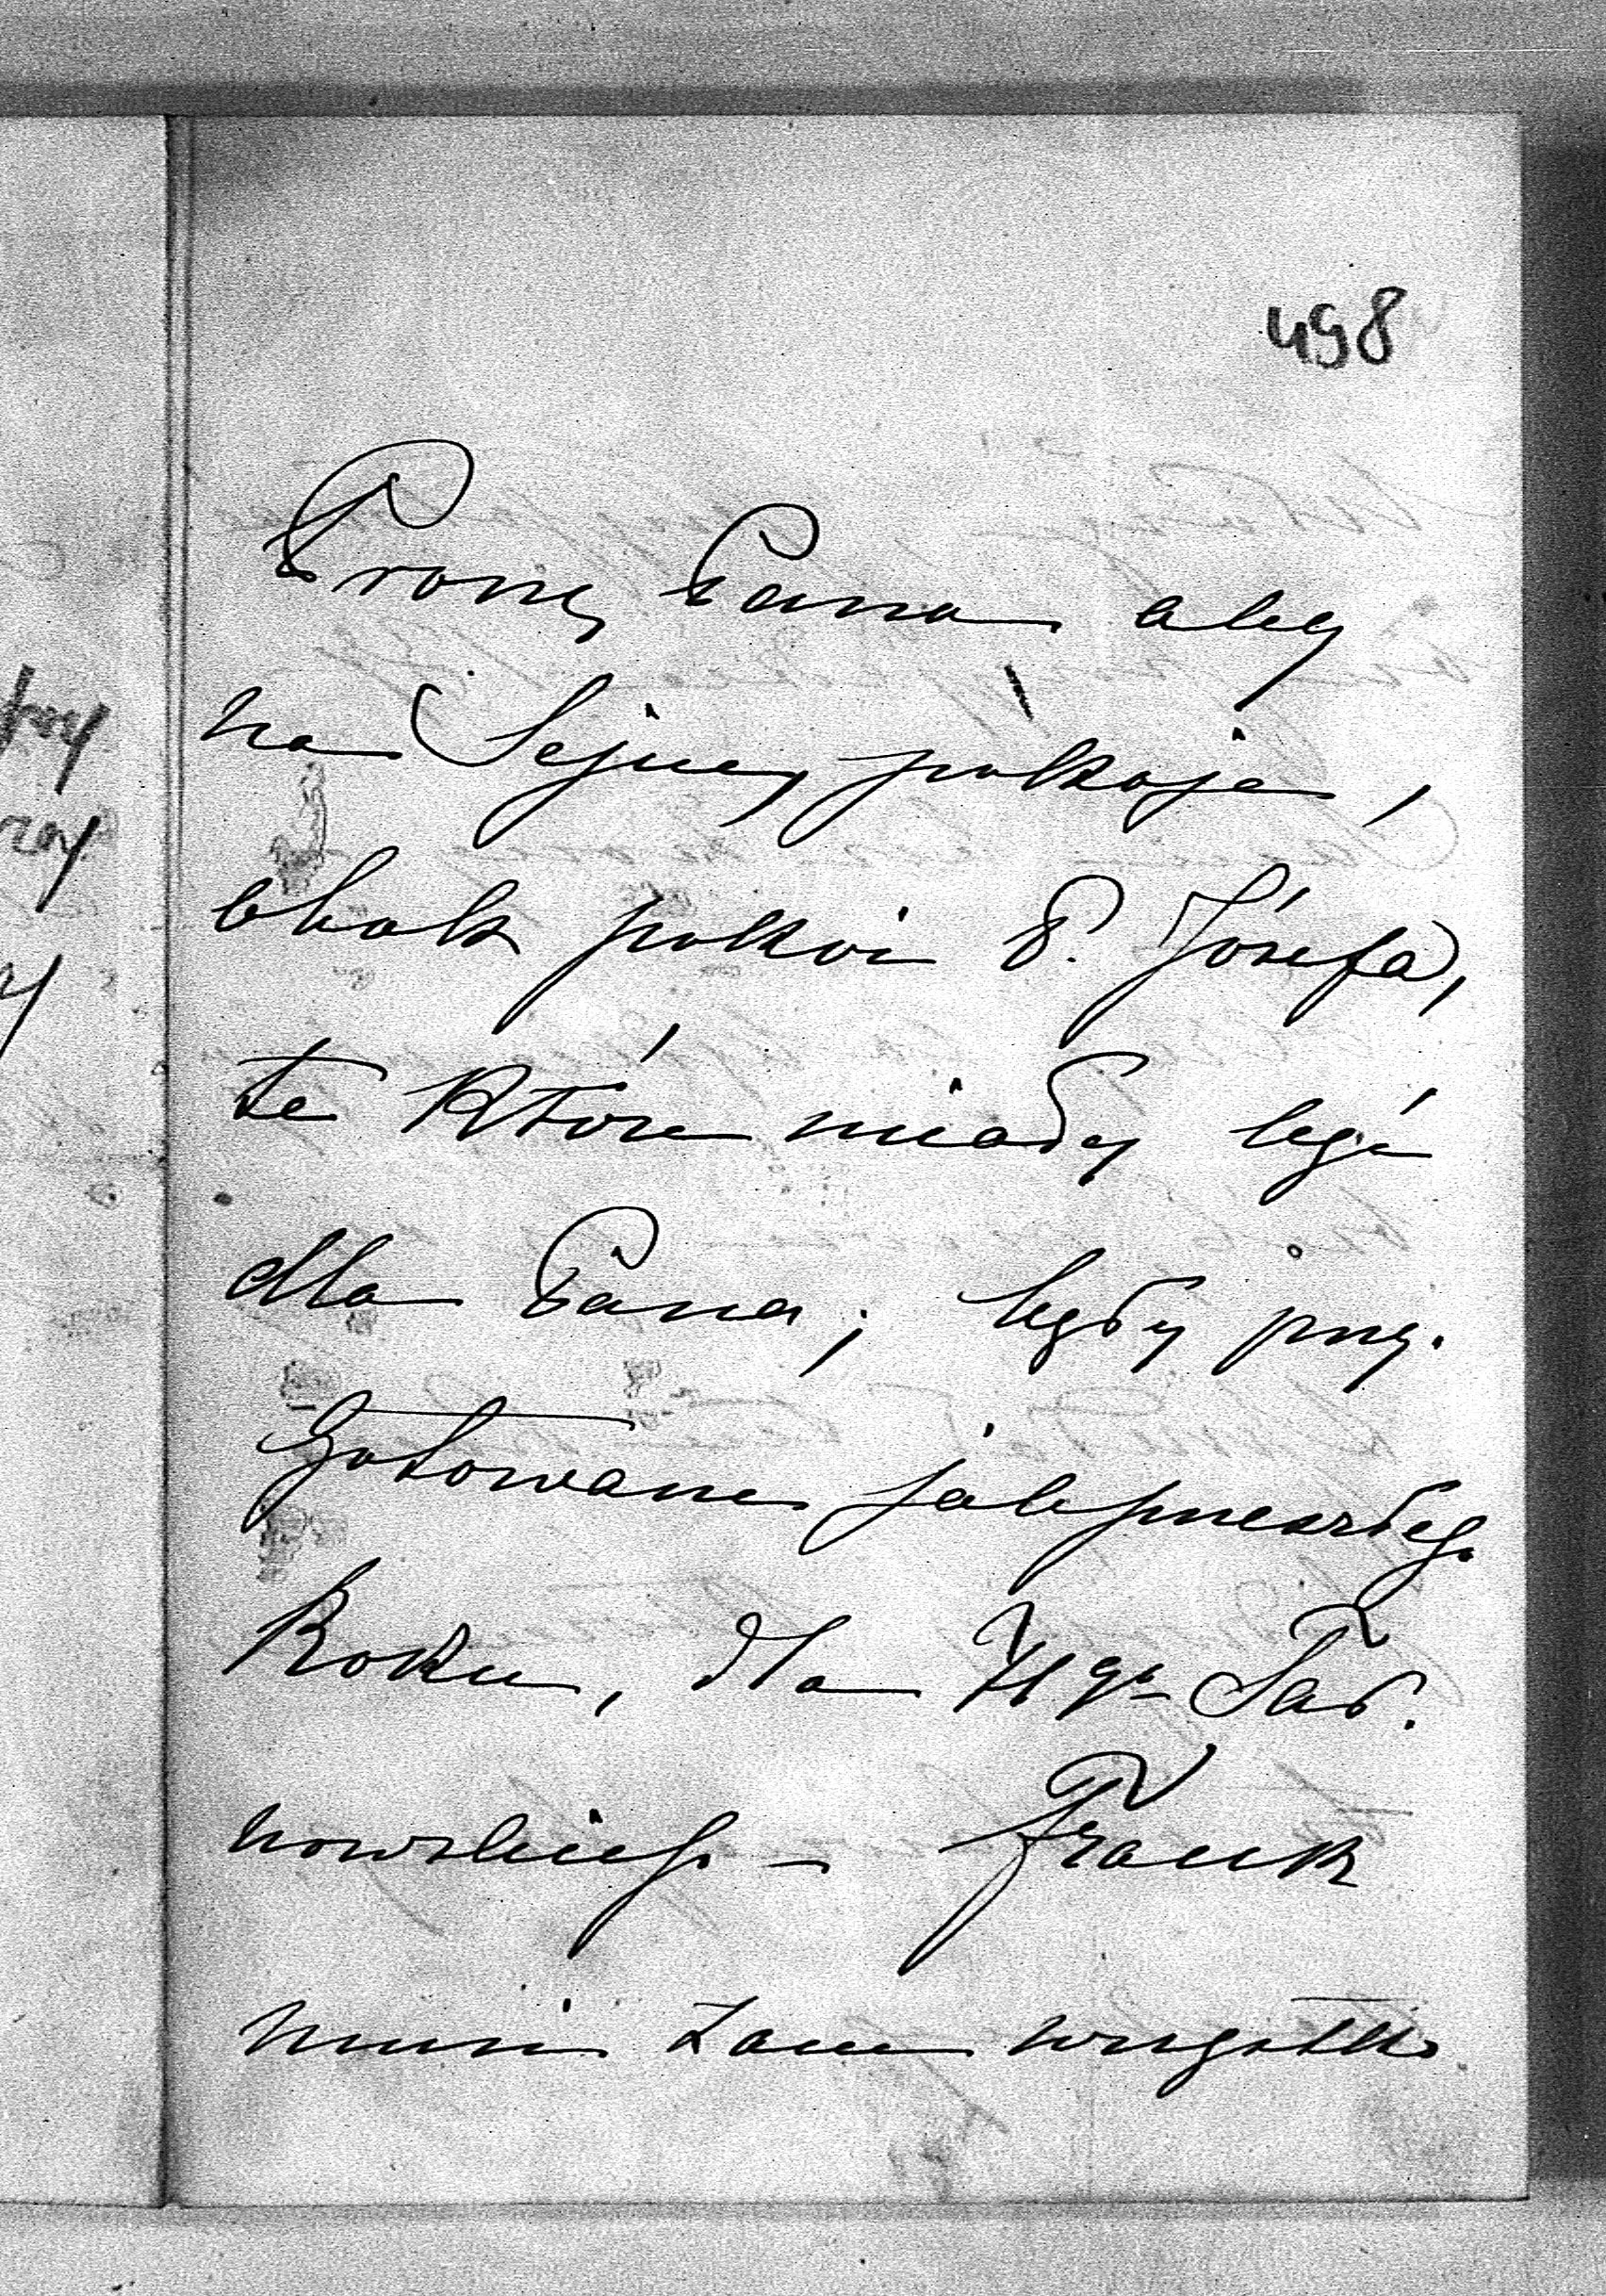 498
Proszę Pana aby
na Sejmę pokoje,
obok pokoi P. Józefa,
te które miały być
dla Pana; były przy-
gotowane jak przeszłego
Roku, dla Hgo Tar-
nowskiego – Frank
musi tam wszystko